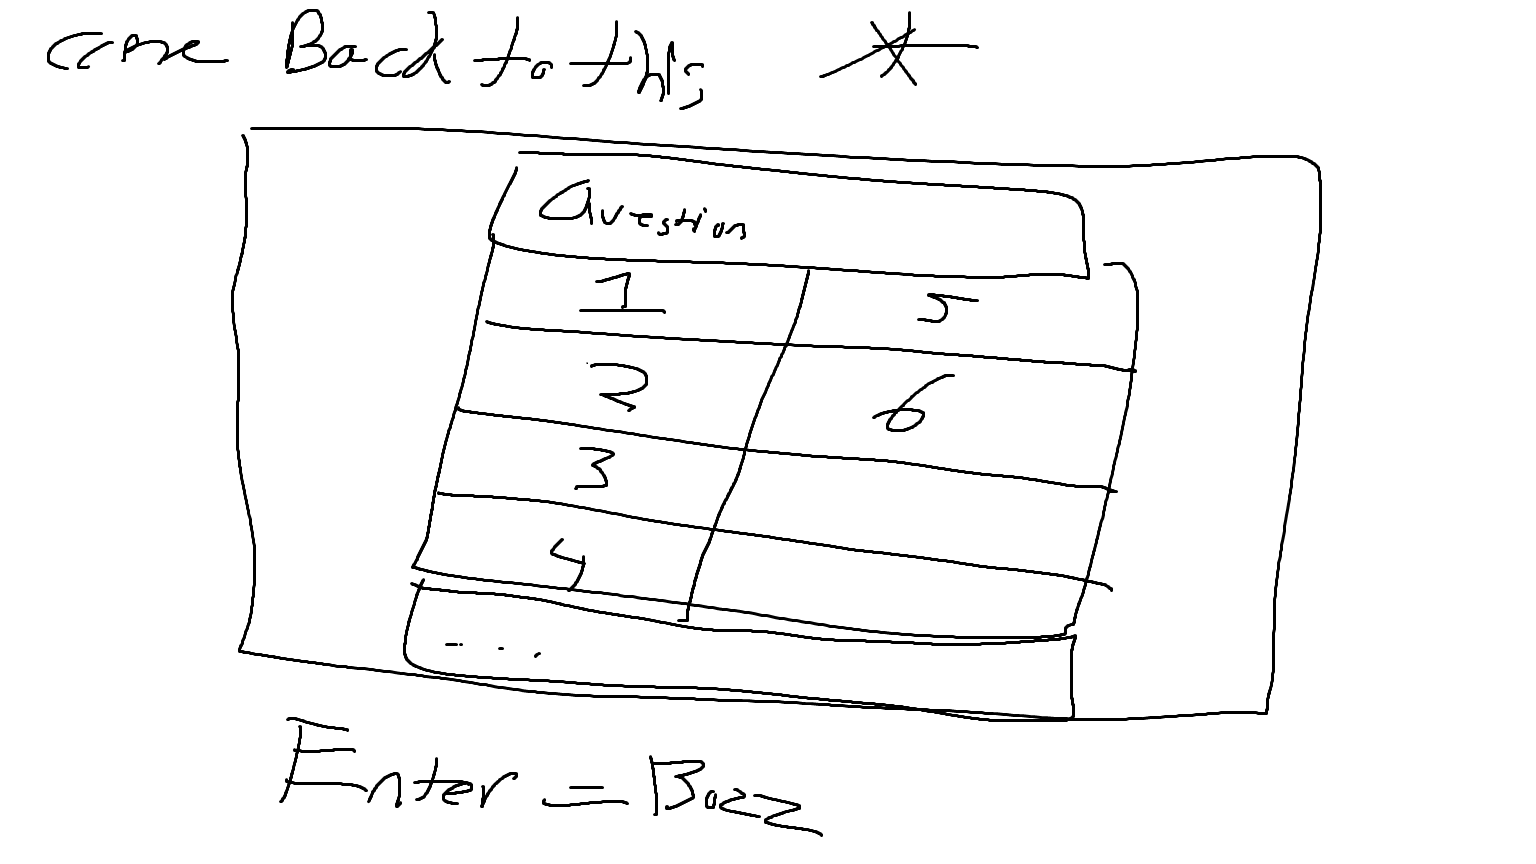 come Back to this
Question
1 5
2 6
3
4
- . .
Enter = Buzz